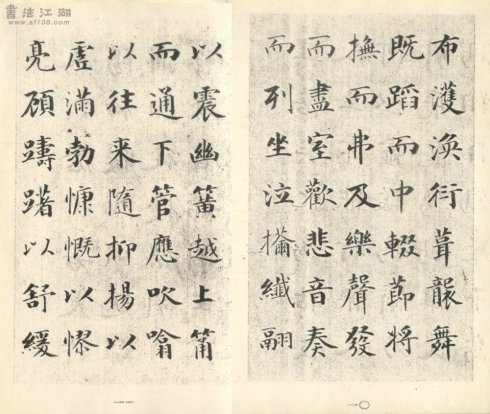 書法江湖
www.sf108.com
布濩渙衍葺襲舞
既蹈而中輟節將
撫而弗及樂聲發
而盡室歡悲音奏
而列坐泣擫纖翮
以震幽簧越上筩
而通下管應吹噏
以往来隨抑揚以
虛滿勃慷慨以憀
亮顧躊躇以舒緩